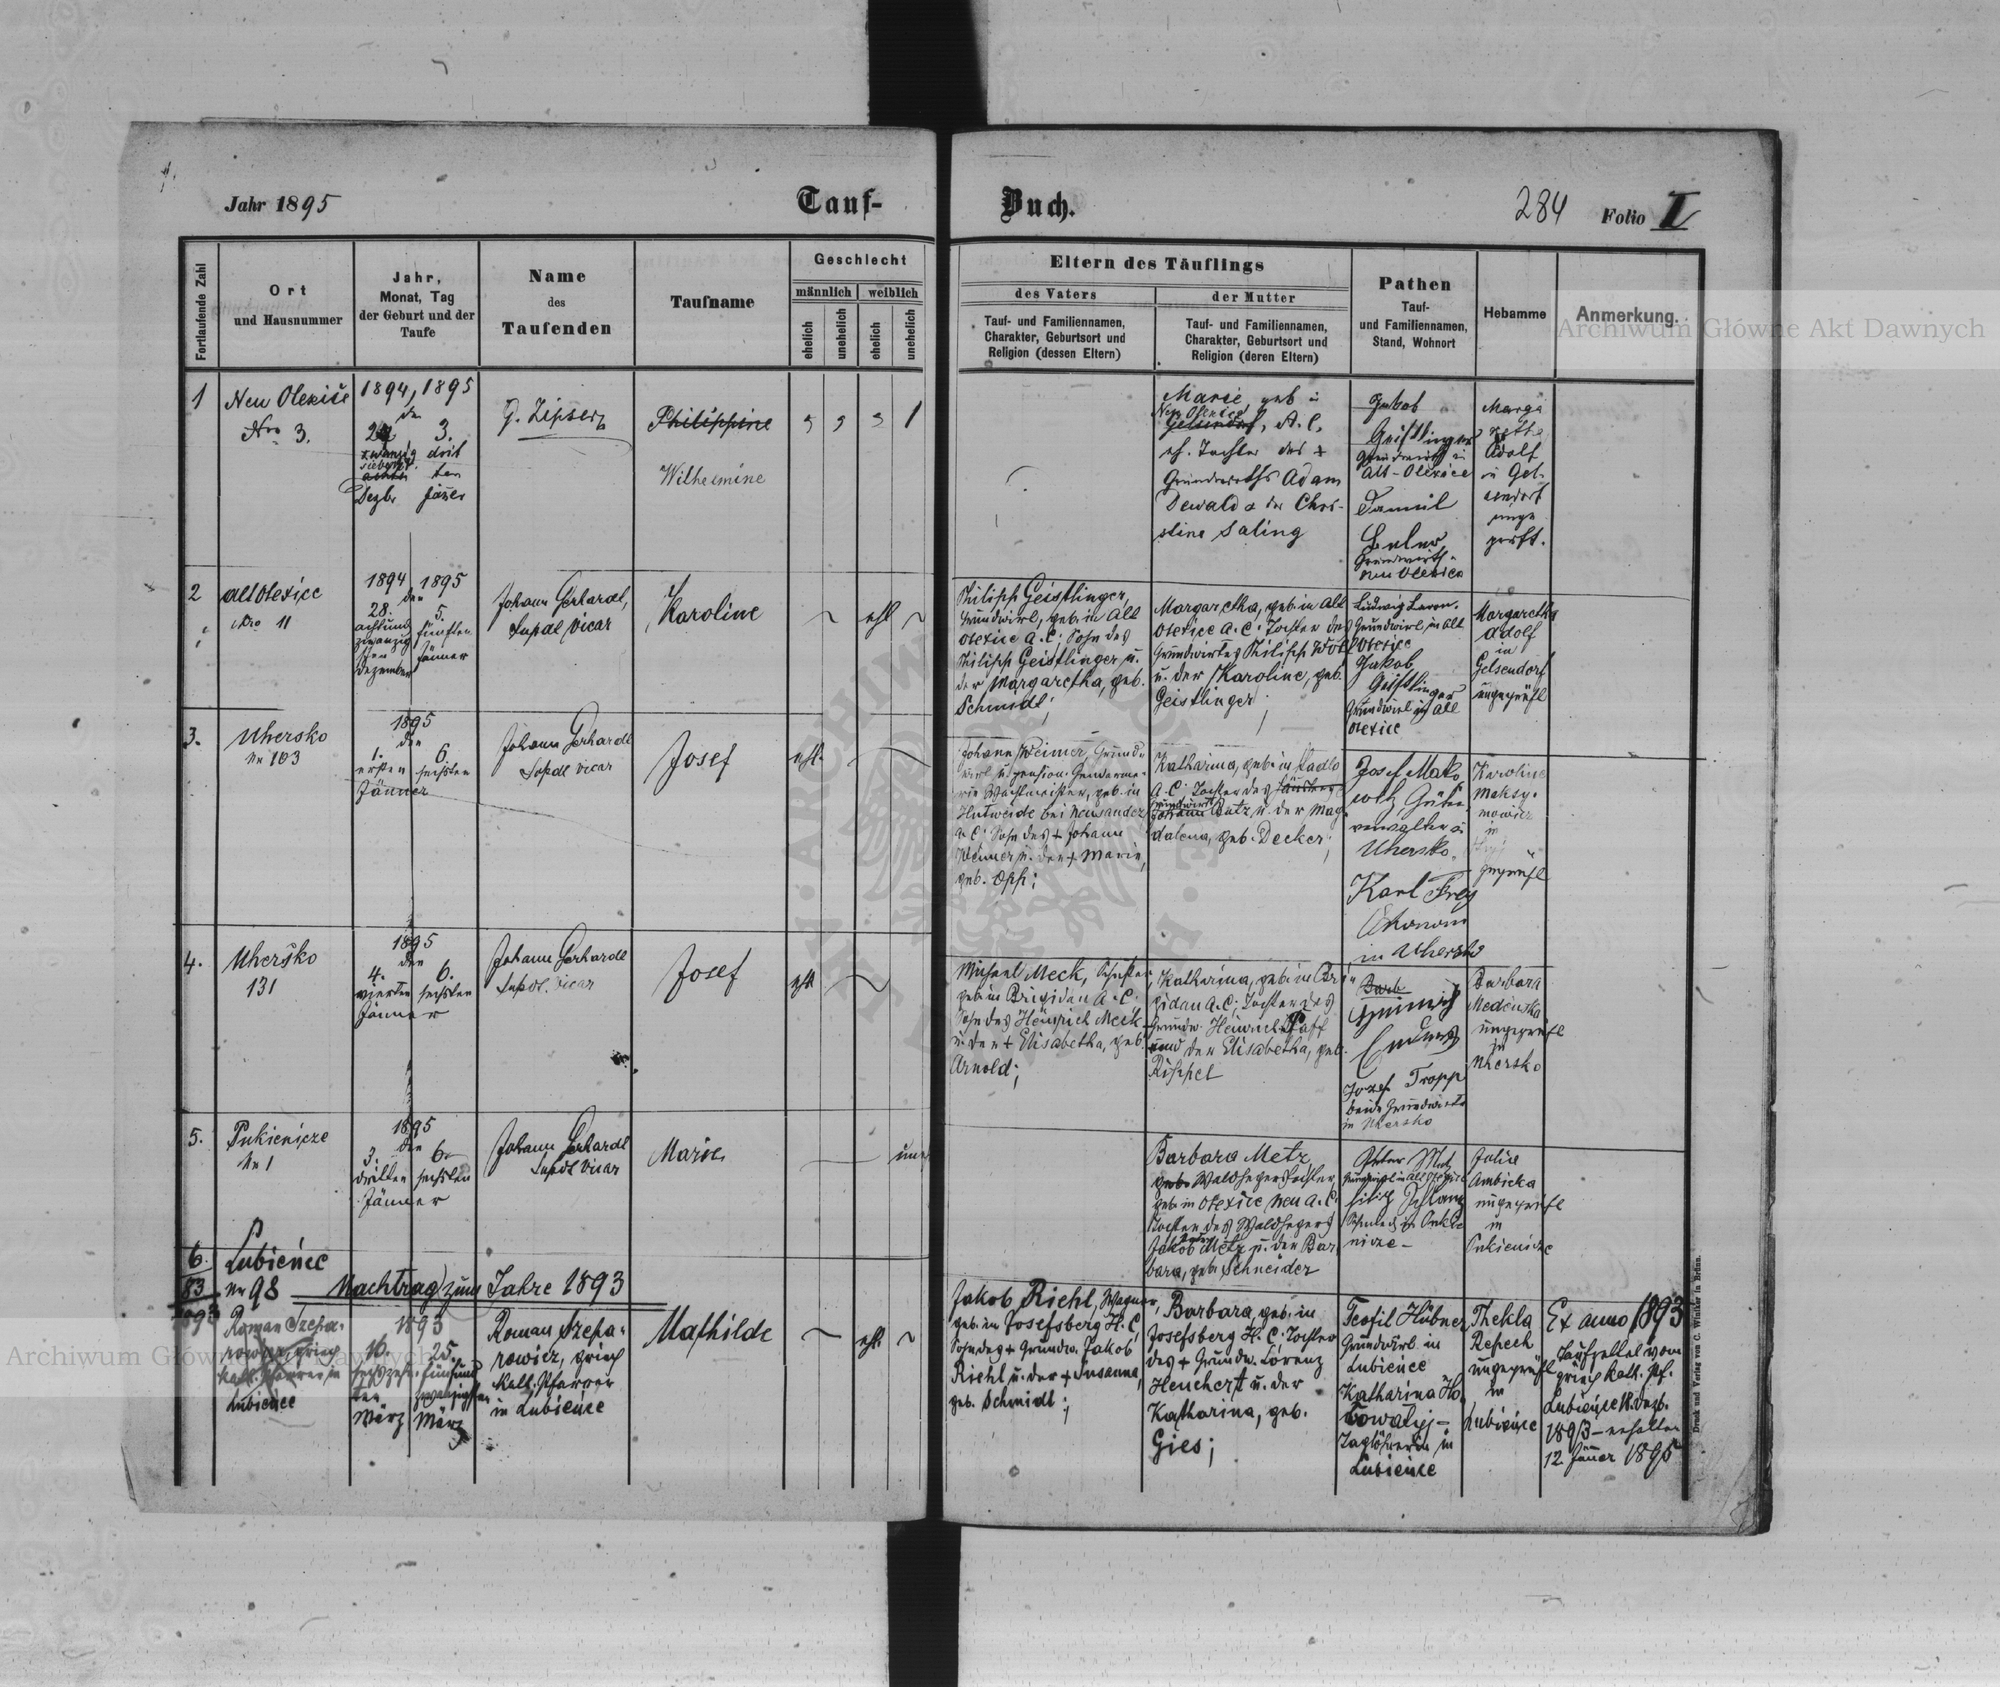 Jahr 1895
Tauf-
Buch.
284
Folio I
Fortlaufende Zahl
Ort
und Hausnummer
Jahr,
Monat, Tag
der Geburt und der
Taufe
Name
des
Taufenden
Taufname
Geschlecht
männlich
weiblich
ehelich
unehelich
ehelich
unehelich
Eltern des Täuflings
des Vaters
der Mutter
Tauf- und Familiennamen,
Charakter, Geburtsort und
Religion (dessen Eltern)
Tauf- und Familiennamen,
Charakter, Geburtsort und
Religion (deren Eltern)
Pathen
Tauf-
und Familiennamen,
Stand, Wohnort
Hebamme
Anmerkung.
Archiwum Główne Akt Dawnych
1
Neu Olexice
Nro 3.
1894, 1895
den
3.
zwanzig
drit
ten
Dezbr
Jäner
G. Zipser
Philippine
Wilhelmine
1
Marie, geb in
Neu Olexice
Gelsendorf, A. C.
eh. Tochter des +
Grundwirths Adam
Dewald u der Chri-
stine Saling
Jakob
Geistlinger
Grundwirth in
Alt-Olexice
Grundwirth
Neu Olexice
Marga
retha
Adolf
in Gel-
sendorf
unge
prüft.
2
Alt Olexice
Nro 11
1894 1895
den
28. 5.
achtund
zwanzig
sten
fünften
Dezember
Jänner
Johann Gerhardt,
Supdt Vicar
Karoline
ehl
Philipp Geistlinger,
Grundwirt, geb. in Alt
Olexice A. C. Sohn des
Philipp Geistlinger u.
der Margaretha, geb.
Schmidt;
Margaretha, geb. in Alt
Olexice A. C. Tochter des
Grundwirtes Philipp Wolf
u. der Karoline, geb.
Geistlinger;
Ludwig
Grundwirt in Alt
Olexice
Jakob
Geistlinger
Grundwirt in Alt
Olexice
Margaretha
Adolf
in
Gelsendorf
ungeprüft
3.
Uhersko
Nr 103
1895
den
1. 6.
ersten sechsten
Jänner
Johann Gerhardt
Supdt Vicar
Josef
ehl.
Johann Weimer, Grund-
wirt u. pension. Gendarme-
rie Wachtmeister, geb. in
Hutweide bei Neusandez
A. C. Sohn des + Johann
Weimer u. der + Marie,
geb. Opp;
Katharina, geb. in Stadlo
A. C. Tochter des
Grundwirts
Johann Butz u. der Mag-
dalena, geb. Decker;
Josef Mako
witz, Güter
verwalter in
Uhersko.
Karl Frey
Ökonom
in Uhersko
Karoline
Maksy-
mowicz
in
geprüft
4.
Uhersko
131
1895
den
4. 6.
vierten sechsten
Jänner
Johann Gerhardt
Supdt. Vicar
Josef
ehl
Michael Meck,
geb. in Brigidau A. C.
Sohn des Heinrich Meck
u. der + Elisabetha, geb.
Arnold;
Katharina, geb. in Bri-
gidau A. C; Tochter des
Grundw. Heinrich Pfaff
und der Elisabetha, geb.
Rippel
Barb
Heinrich
Josef Tropp
beide Grundwirte
in Uhersko
Barbara
Medenska
ungeprüft
in
Uhersko
5.
Pukienicze
Nr 1
1895
den
3. 6.
dritten sechsten
Jänner
Johann Gerhardt
Supdt Vicar
Marie
une
Barbara Metz
geb. Waldhegerstochter,
geb. in Olexice Neu A. C.
Tochter des Waldhegers
Jakob Metz u. der Bar
bara, geb. Schneider
Peter Metz
Grundwirt in Alt Olexice
Schmied in Pukie
nicze
Julia
Ambicka
ungeprüft
in
Pukienicze
6.
83
1893
Lubieńce
Nr 98
Nachtrag zum Jahre 1893
Roman Szepa-
rowicz, griech
kath. Pfarrer in
Lubieńce
1893
16. 25.
sechzehn
ten
fünfund
zwanzigsten
März März
Roman Szepa-
rowicz, griech
kath. Pfarrer
in Lubieńce
Mathilde
ehl
Jakob Riehl, Wagner,
geb. in Josefsberg H. C,
Sohn des + Grundw. Jakob
Riehl u. der + Susanna,
geb. Schmidt;
Barbara, geb. in
Josefsberg H. C. Tochter
des + Grundw. Lorenz
Heuchert u. der
Katharina, geb.
Gies;
Teofil Hübner,
Grundwirt in
Lubieńce
Katharina Ho
Taglöhnerin in
Lubieńce
Thekla
Repech
ungeprüft
in
Lubieńce
Ex anno 1893
Taufzettel vom
griech. kath. Pf.
Lubieńce 18. Dezb.
1893 – erhalten
12. Jänner 1895
Archiwum Główne Akt Dawnych
Druck und Verlag von C. Winiker in Brünn.